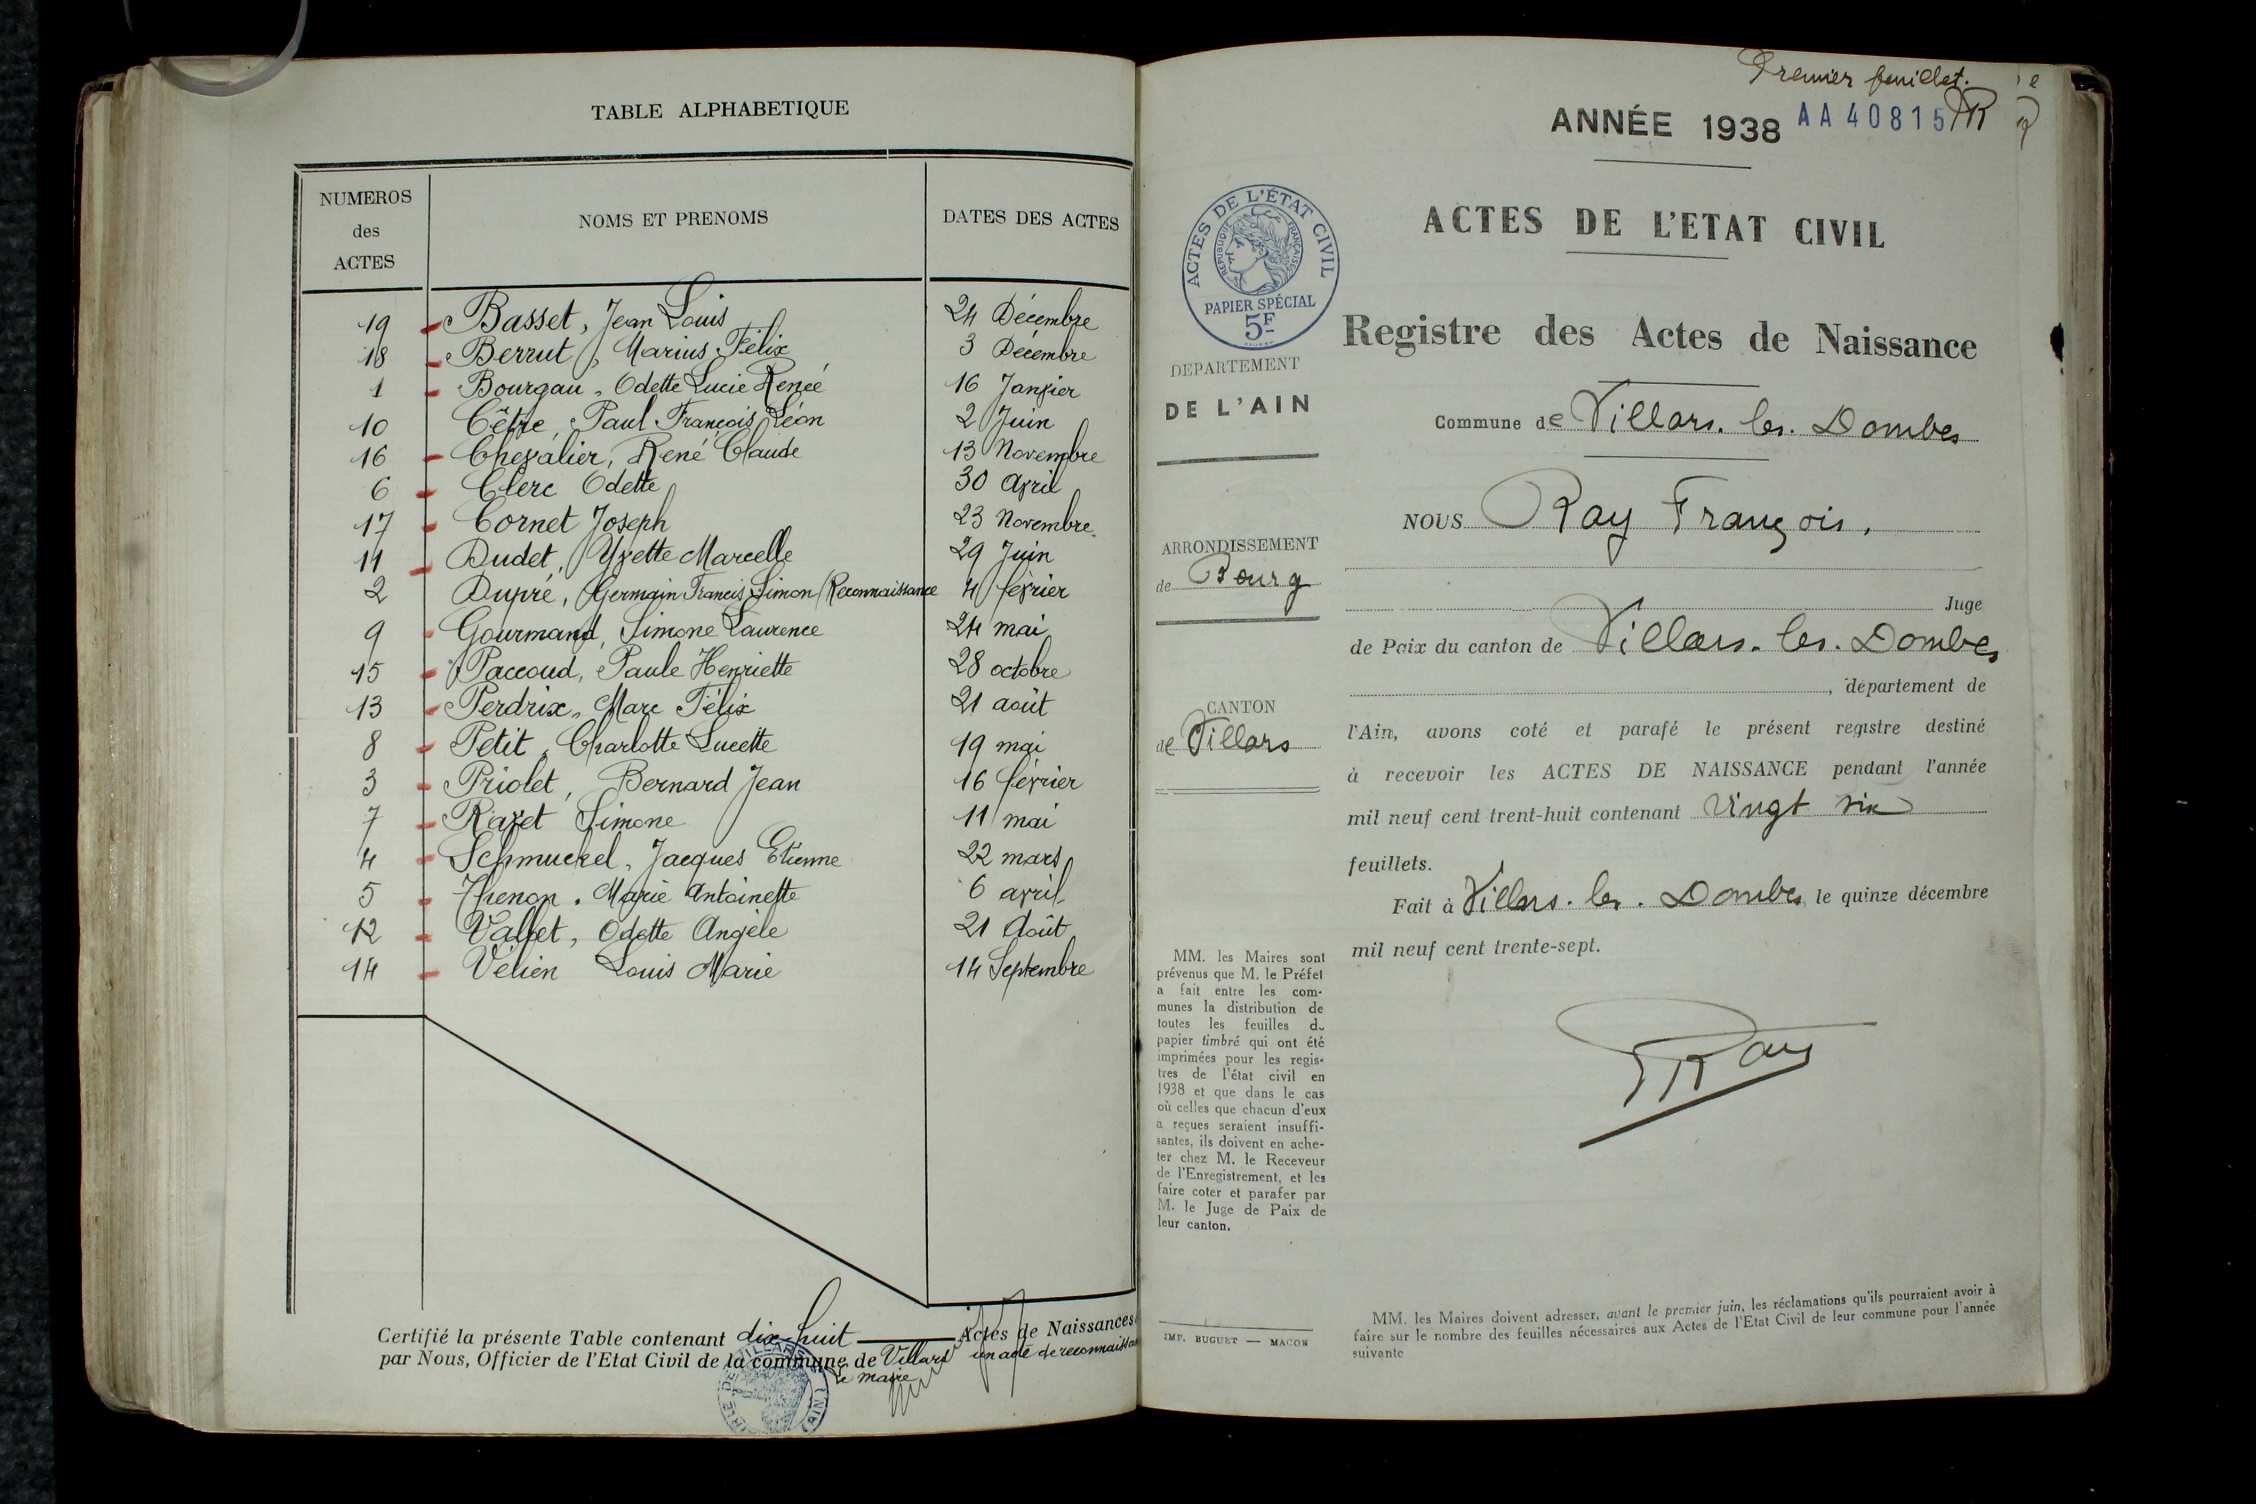 TABLE ALPHABETIQUE
NUMEROS
des
ACTES
NOMS ET PRENOMS
DATES DES ACTES
19 Basset, Jean Louis 24 Décembre
18 Berrut, Marius Félix 3 Décembre
1 Bourgau, Odette Lucie Renée 16 Janvier
10 Cêtre, Paul François Léon 2 Juin
16 Chevalier, René Claude 13 Novembre
6 Clerc Odette 30 Avril
17 Cornet Joseph 23 Novembre
11 Dudet, Yvette Marcelle 29 Juin
2 Dupré, Germain Francis Simon (Reconnaissance 4 février
9 Gourmand, Simone Laurence 24 mai
15 Paccoud, Paule Henriette 28 octobre
13 Perdrix, Marc Félix 21 août
8 Petit, Charlotte Lucette 19 mai
3 Priolet, Bernard Jean 16 février
7 Ravet Simone 11 mai
4 Schmuckel, Jacques Etienne 22 mars
5 Thenon, Marie Antoinette 6 avril
12 Vallet, Odette Angèle 21 Août
14 Velien Louis Marie 14 Septembre
Certifié la présente Table contenant dix-huit Actes de Naissances
un acte de reconnaissan
par Nous, Officier de l'Etat Civil de la commune de Villars
Le maire
Premier feuillet.
ANNÉE 1938 AA40815
ACTES DE L'ÉTAT CIVIL
REPUBLIQUE FRANÇAISE
PAPIER SPÉCIAL
5F
DEPARTEMENT
DE L'AIN
ARRONDISSEMENT
de Bourg
CANTON
de Villars
MM. les Maires sont
prévenus que M. le Préfet
a fait entre les com-
munes la distribution de
toutes les feuilles du
papier timbré qui ont été
imprimées pour les regis-
tres de l'état civil en
1938 et que dans le cas
où celles que chacun d'eux
a reçues seraient insuffi-
santes, ils doivent en ache-
ter chez M. le Receveur
de l'Enregistrement, et les
faire coter et parafer par
M. le Juge de Paix de
leur canton.
IMP. BUGUET — MACON
ACTES DE L'ETAT CIVIL
Registre des Actes de Naissance
Commune de Villars. les. Dombes
NOUS Ray François,
Juge
de Paix du canton de Villars. les. Dombes
, département de
l'Ain, avons coté et parafé le présent registre destiné
à recevoir les ACTES DE NAISSANCE pendant l'année
mil neuf cent trent-huit contenant vingt six
feuillets.
Fait à Villars. les. Dombes le quinze décembre
mil neuf cent trente-sept.
Ray
MM. les Maires doivent adresser, avant le premier juin, les réclamations qu'ils pourraient avoir à
faire sur le nombre des feuilles nécessaires aux Actes de l'Etat Civil de leur commune pour l'année
suivante